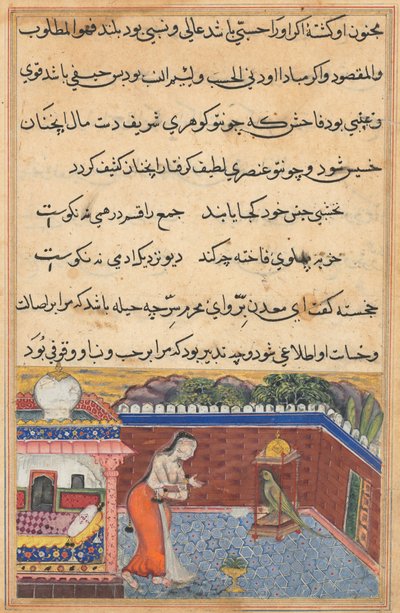 مجنون او کشته اگر او را حسبی باشد عالی و نسبی بود بلند فهو المطلوب
والمقصود و اگر مبادا او دنی الحسب و لئیم النسب بود پس حیفی باشد قوی
و غبنی بود فاحش که چو تو کوهری شریف دست مال اپخنان
خسیس شود و چو تو عنصری لطیف کرفتار اپخنان کثیف کردد
نخشبی جنس خود کجا یابند جمع را قسم درهمی نه نکوست
پهلوی فاخته چه کند دیو نزدیک ادمی نه نکوست
خجسته کفت ای معدن برّ و ای محرم سرّ چه حیله باشد که مرا بر اصالت
و حسات او اطلاعی شود و چه تدبیر بود که مرا بر حسب و نسب او وقوفی بود